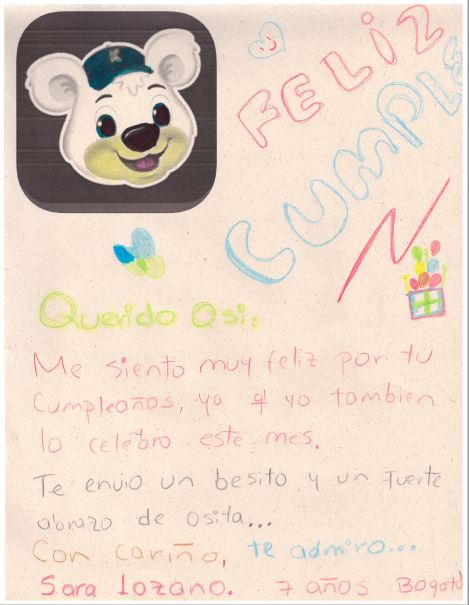 FELIZ
CUMPLE
Querido Osi:
Me siento muy feliz por tu
Cumpleaños, ya q yo tambien
lo celebro este mes.
Te envio un besito y un fuerte
abrazo de osita...
Con cariño, te admiro...
Sara Lozano. 7 años Bogotá